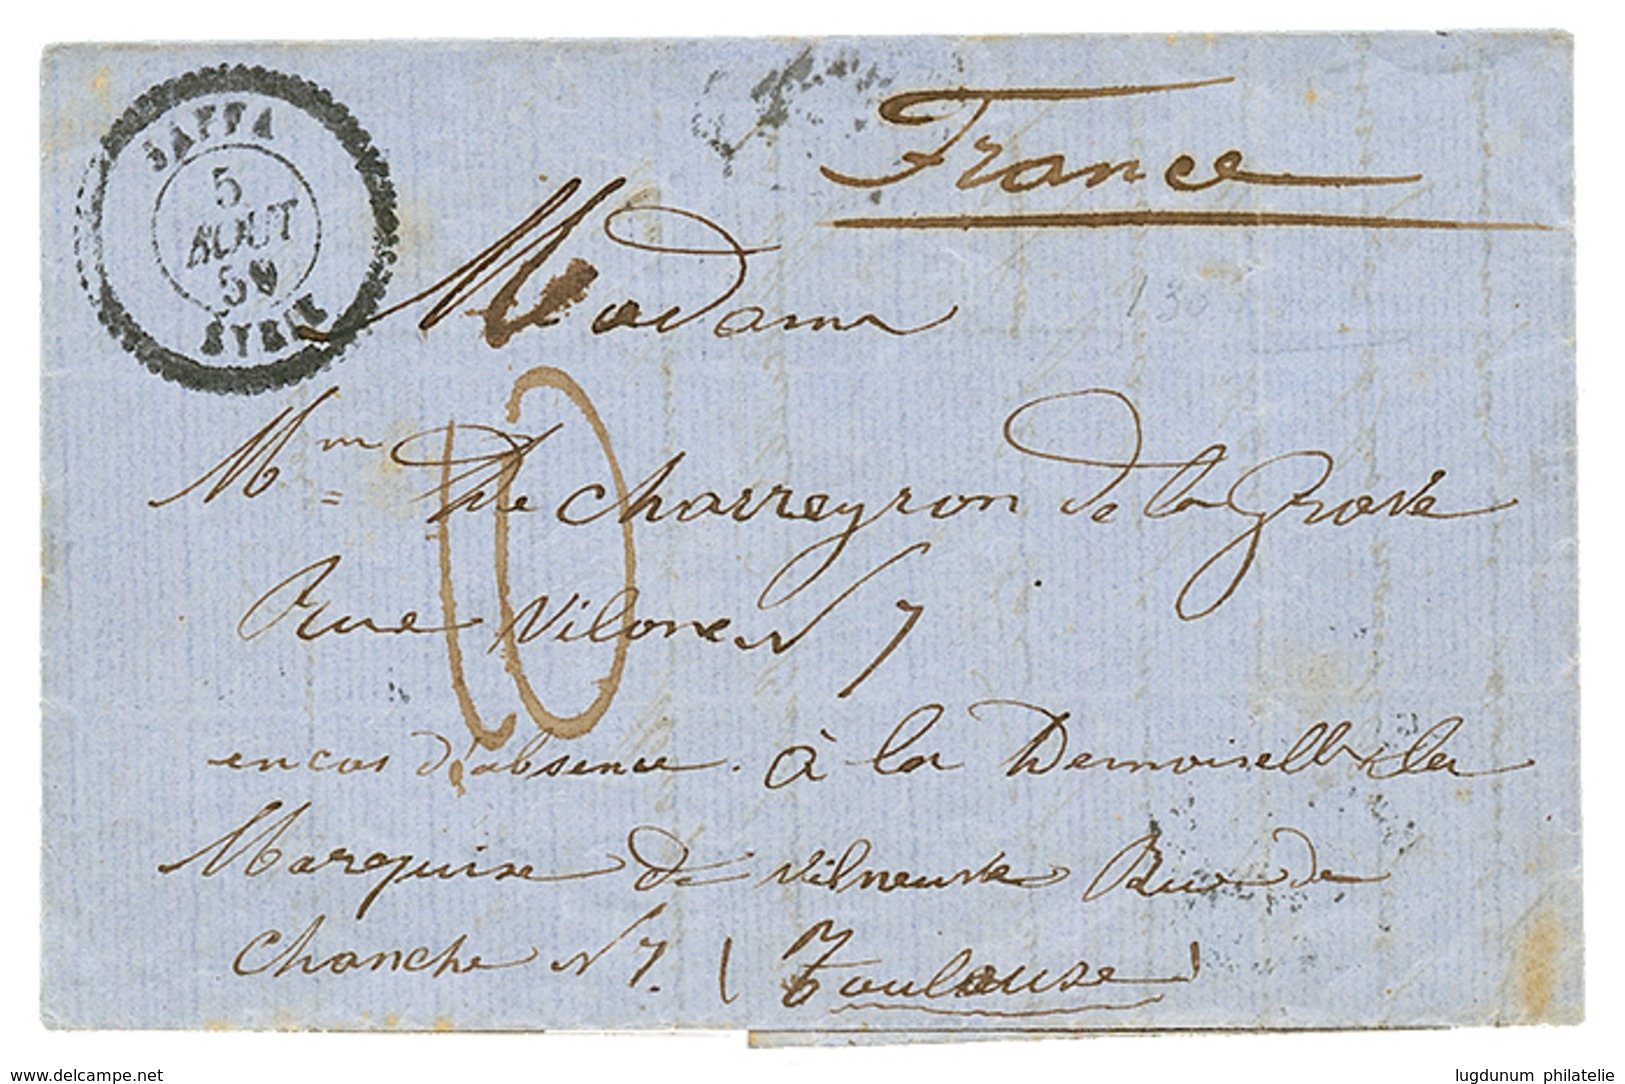 JAFFA
5
AOUT
SYRIE
France
Madame
10
Mm = de charreyron de la
Rue Vilone N 7
en cas d'absence . à la Demoiselle
Marquise de vilneuve Rue de
Chanche N 7. ( Toulouse )
www.delcampe.net
lugdunum philatelie